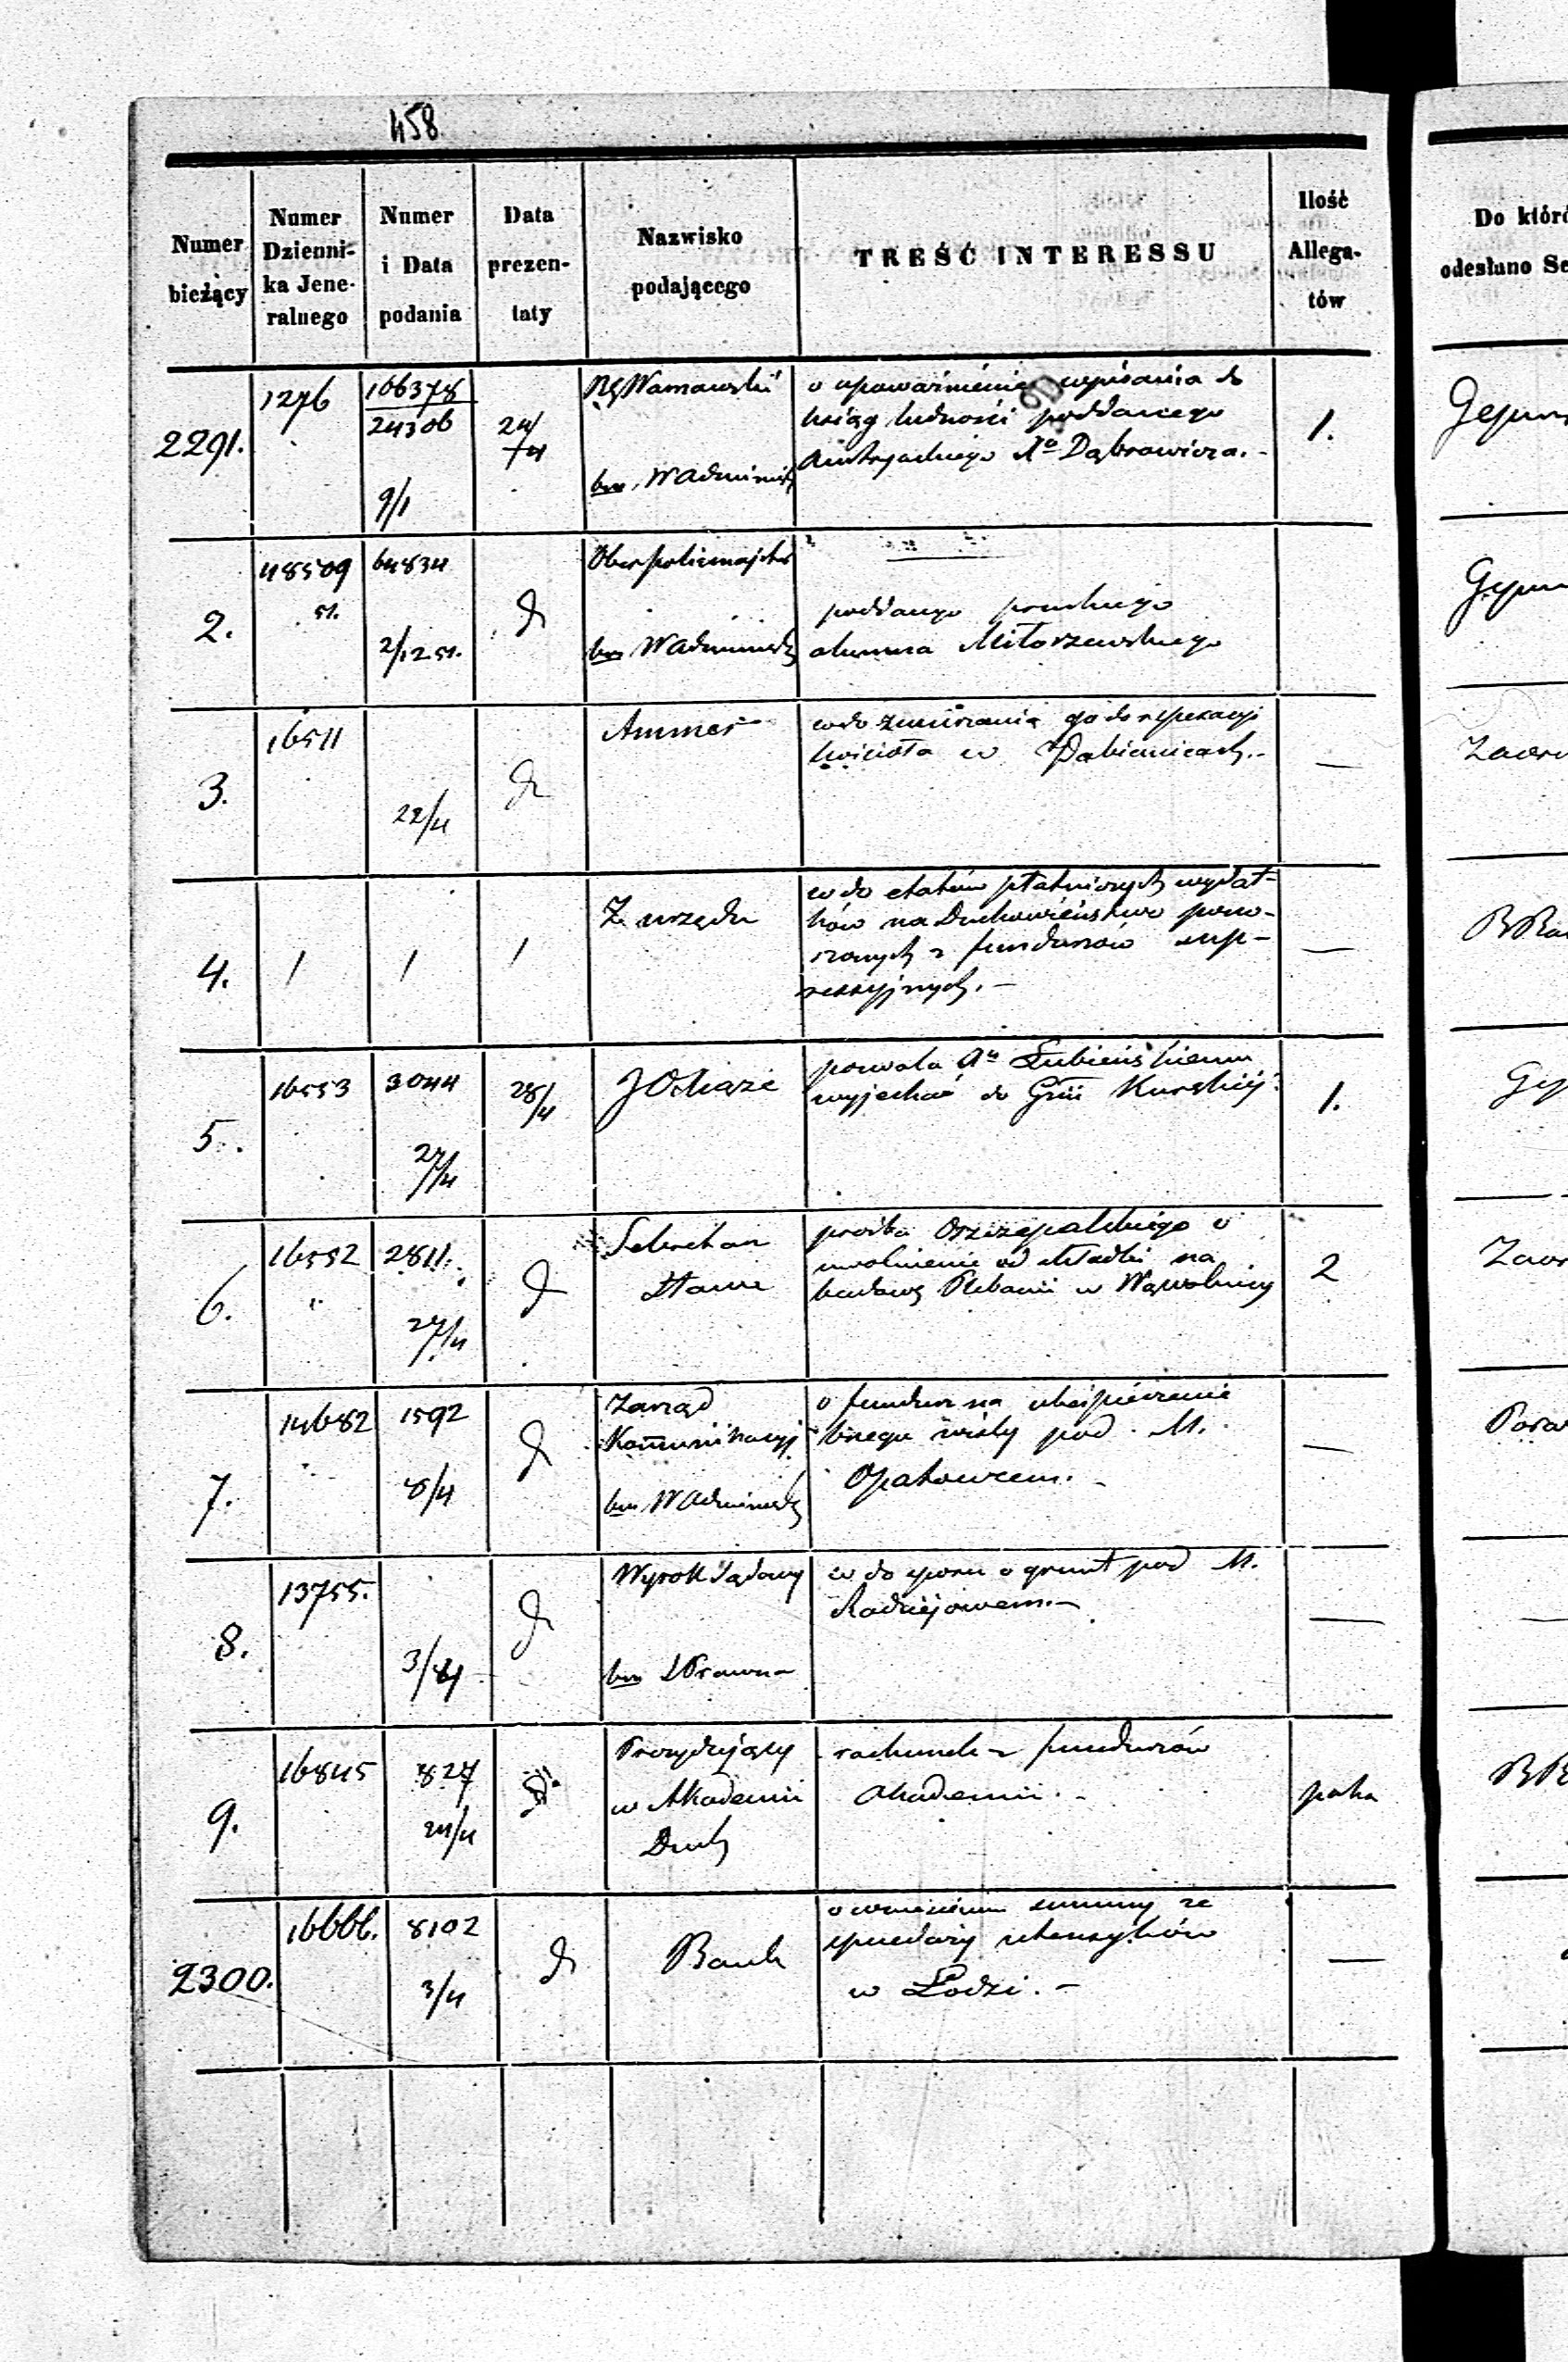 458
Numer bieżący
Numer Dzienni- ka Jene- ralnego
Numer i Data podania
Data prezen- taty
Nazwisko podającego
TREŚĆ INTERESSU
Ilość Allega- tów
2291.
1276
106378
24306
9/1
24/4
Rg Warszawski
bm. WAdminis
o upoważnienie wpisania do
ksiąg ludności poddanego
Austryackiego Xa Dąbrowicza. -
1.
2.
48509
51.
64834
2/12 51.
Oberpolicmajster
bm WAdminis
poddanego pruskiego
alumna Miłoszewskiego
3.
16511
22/4
Ammer
co do zmuszania go do reperacyi
kościoła w Pabianicach. -
—
4.
/
/
/
Z urzędu
co do etatów płatniczych wydat-
ków na Duchowieństwo pono-
szonych z funduszów sup-
ressyjnych. -
—
5.
16553
3044
27/4
28/4
JO Xiąże
pozwala Xu Łubieńskiemu
wyjechać do Gnii Kurskiéj.
1.
6.
16552
2811.
27/4
Sekretarz
Stanu
prośba Orzeszpalskiego o
uwolnienie od składki na
budowę Plebanii w Wąwolnicy
2
7.
14682
1592
8/4
Zarząd
Kommunikacyj
bm. WAdminis
o fundusz na ubezpieczenie
brzegu wisły pod M.
Opatowcem. -
—
8.
13755.
3/4
Wyrok Sądowy
bm Prawna
co do sporu o grunt pod M.
Radziejowem. -
—
9.
16845
827
24/4
Prezydujący
w Akademii
Duch
rachunek z funduszów
Akademii. -
paka
2300.
16666.
8102
3/4
Bank
o wniesieniu summy ze
sprzedaży utensyliów
w Łodzi. -
—
Do któré
odesłano Se